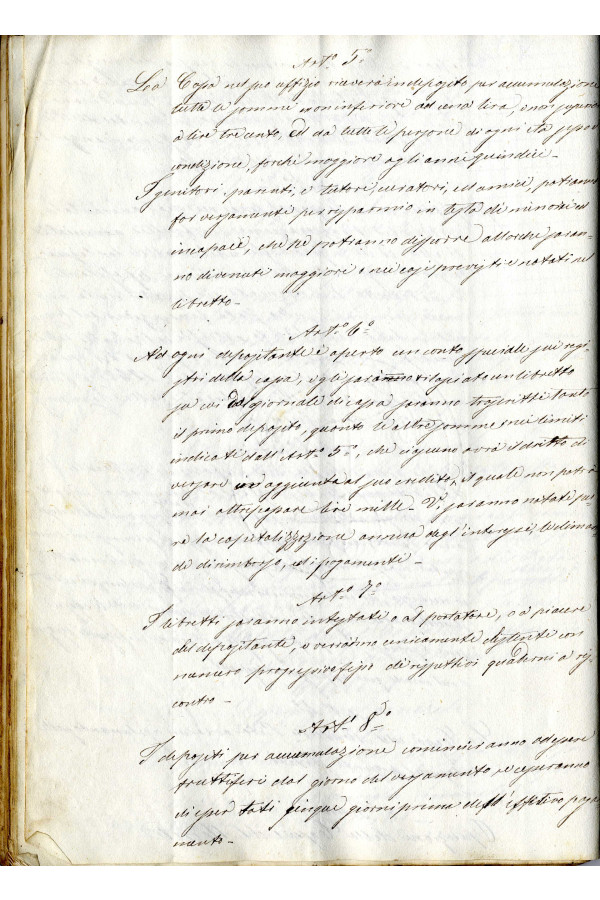 Art.º 5º
La Cassa nel suo uffizio riceverà in deposito per accumulazione
tutte le somme non inferiore ad una lira, e non superiore
a lire trecento, ed da tutte le persone di ogni età e per
condizione, forchè maggiore agli anni quindici -
I genitori, parenti, e tutore, curatori, ed amici, potranno
far versamente per risparmio in testa di minori ed
incapace, che ne potranno disporre allorchè saran-
no divenute maggiore o nei casi previsti e notati nel
libretto -
Art.º 6º
Ad ogni depositante è aperto un conto speciale sui regi-
stri della cassa, e gli sarà rilasciato un libretto
su cui dal giornale di cassa saranno trascritti tanto
il primo deposito, quanto le altre somme nei limiti
indicate dall'Art.º 5º, che ciascuno avrà il dritto di
versare in aggiunta al suo credito, il quale non potrà
mai oltrepassare lire mille - Vi saranno notati pu-
re la capitalizzazione annua degl'interessi, le diman-
de di rimborso, ed i pagamenti -
Art.º 7º
I libretti saranno intestati o al portatore, o a piacere
del depositante, e verranno unicamente distinte con
numero progressivo fisso di rispettivi quaderni a ris-
contro -
Art.º 8º
I depositi per accumulazione comincieranno ad essere
fruttiferi dal giorno del versamento, e cesseranno
di esser tati cinque giorni prima dell'effettivo paga-
mento -